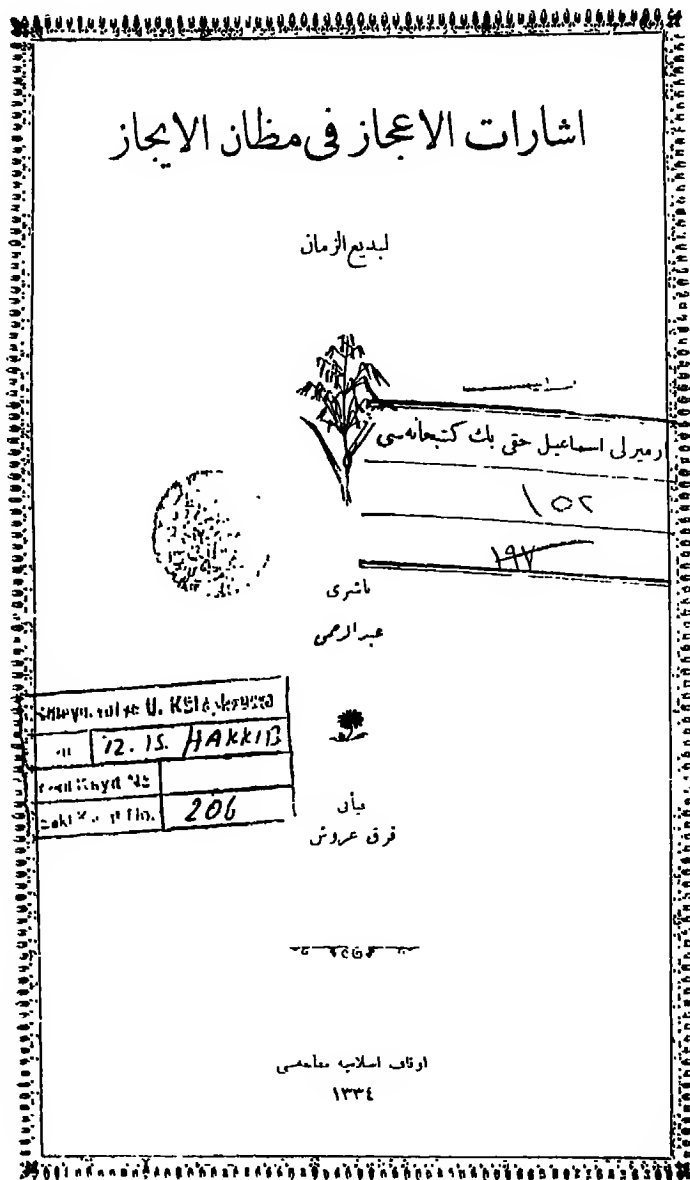 اشارات الاعجاز فى مظان الايجاز
لبديع الزمان
ازميرلى اسماعيل حقى بك كتبخانه سى
١٥٢
١٩٧
ناشرى
عبدالرحمن
Süleymaniye U. Kütüphanesi
İZ. İS. HAKKI B
Yeni Kayıt No
Eski Kayıt No. 206
فيأتى
قرق غروش
اوقاف اسلاميه مطبعه سى
١٣٣٤